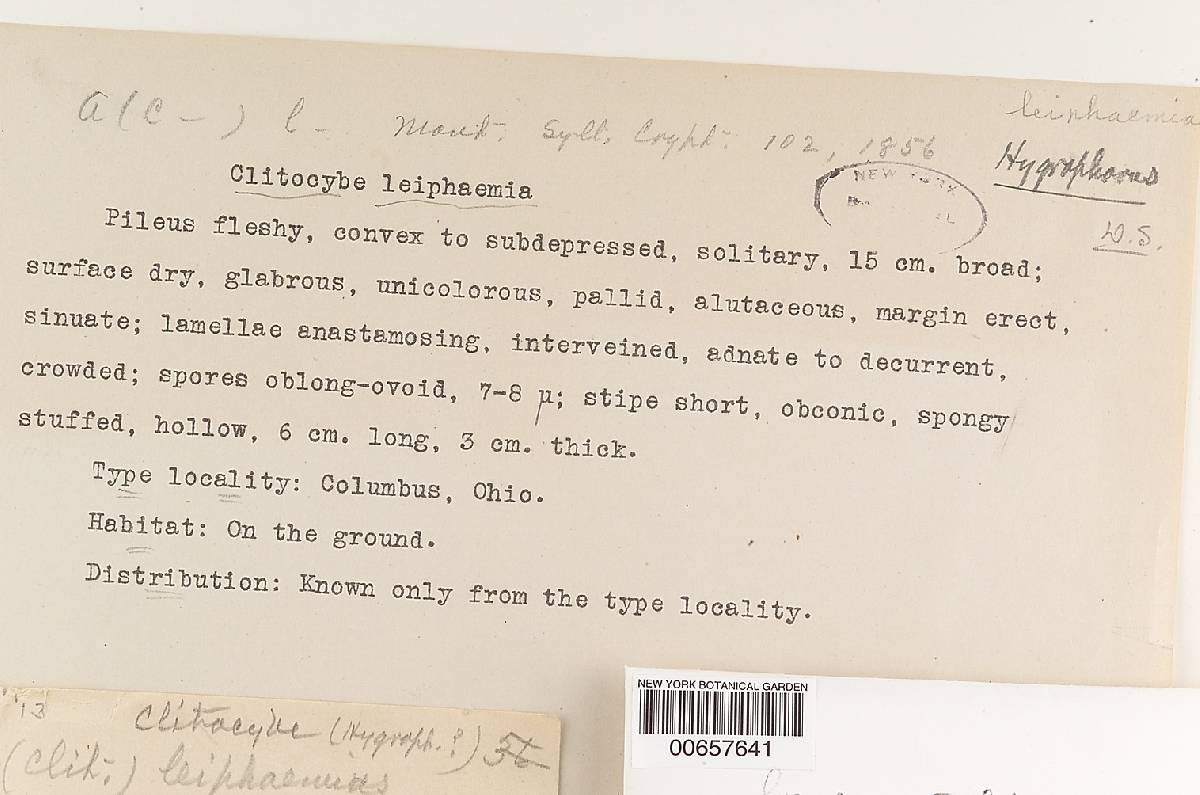 leiphaemia
A (C – ) l – Mont. Syll. Crypt. 102, 1856
Hygrophorus
Clitocybe leiphaemia
NEW YORK
W.S.
Pileus fleshy, convex to subdepressed, solitary, 15 cm. broad;
surface dry, glabrous, unicolorous, pallid, alutaceous, margin erect,
sinuate; lamellae anastamosing, interveined, adnate to decurrent,
crowded; spores oblong-ovoid, 7-8 µ; stipe short, obconic, spongy
stuffed, hollow, 6 cm. long, 3 cm. thick.
Type locality: Columbus, Ohio.
Habitat: On the ground.
Distribution: Known only from the type locality.
13 Clitocybe (Hygroph.?)
(Clit.) leiphaemius
NEW YORK BOTANICAL GARDEN
00657641